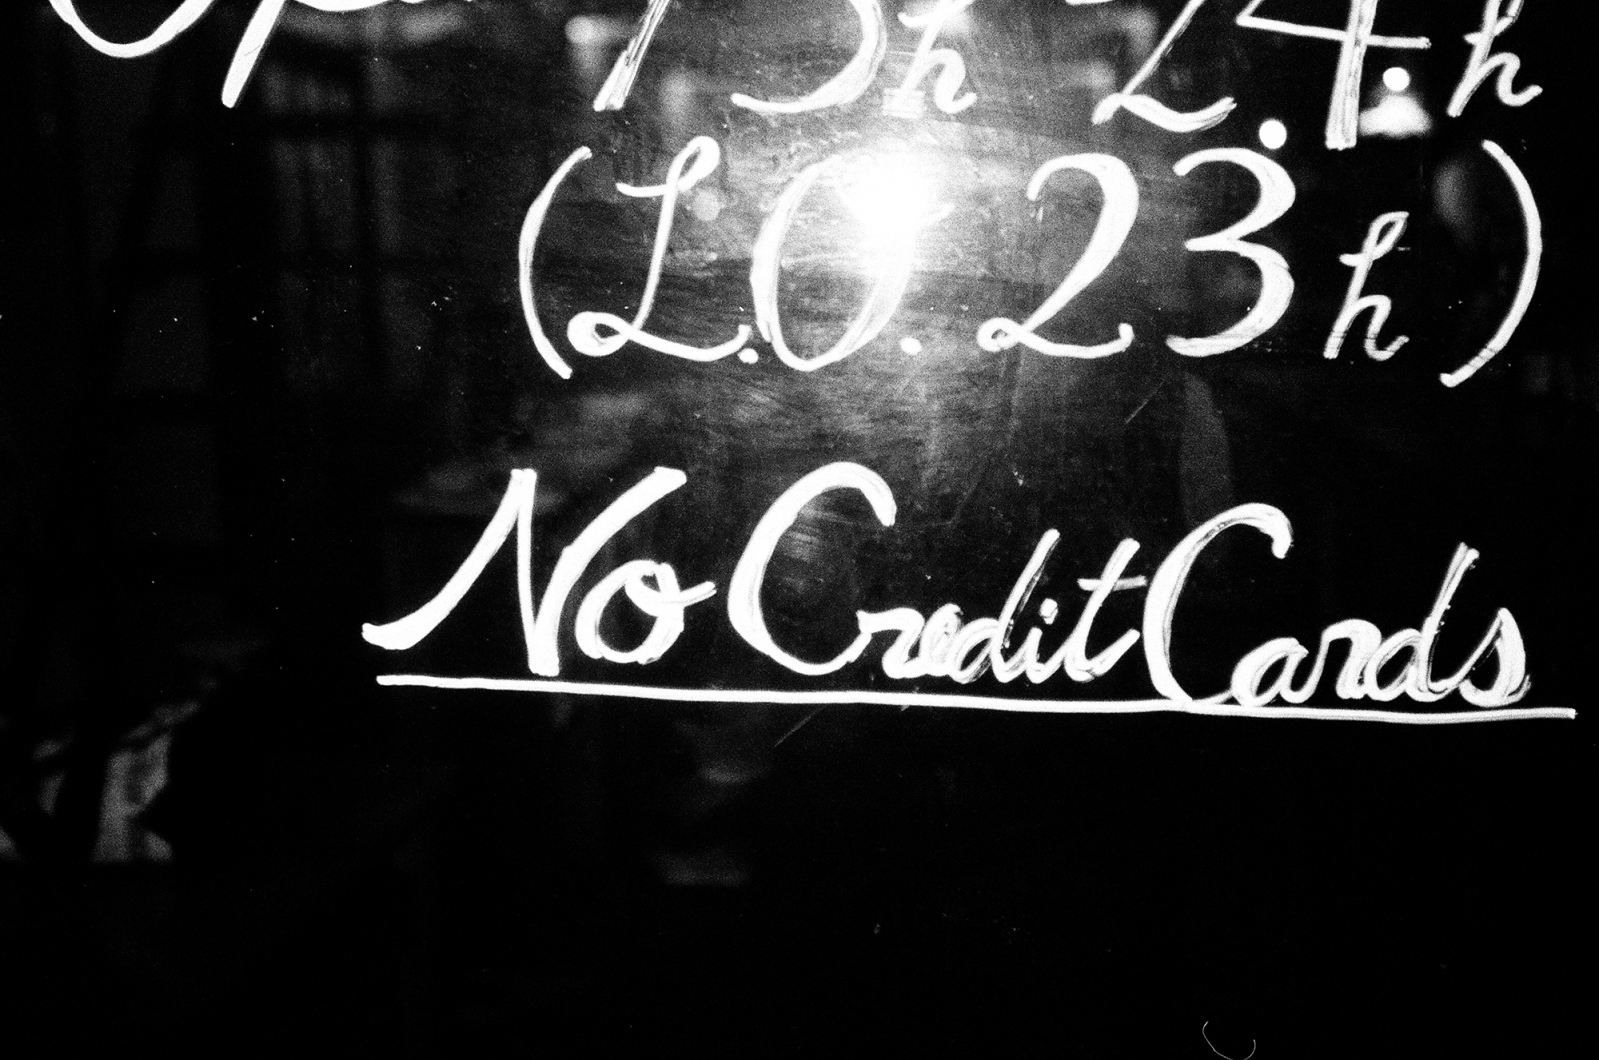 Open 15h-24.h
(L.O.23h)
No Credit Cards